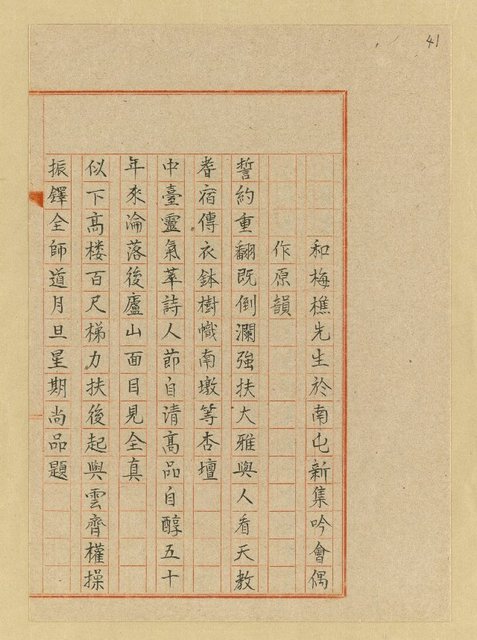 41
和梅樵先生於南屯新集吟會偶
作原韻
誓約重翻既倒瀾強扶大雅與人看天教
耆宿傳衣鉢樹幟南墩等杏壇
中臺靈氣萃詩人節自清高品自醇五十
年來淪落後廬山面目見全真
似下高楼百尺梯力扶後起與雲齊權操
振鐸全師道月旦星期尚品題